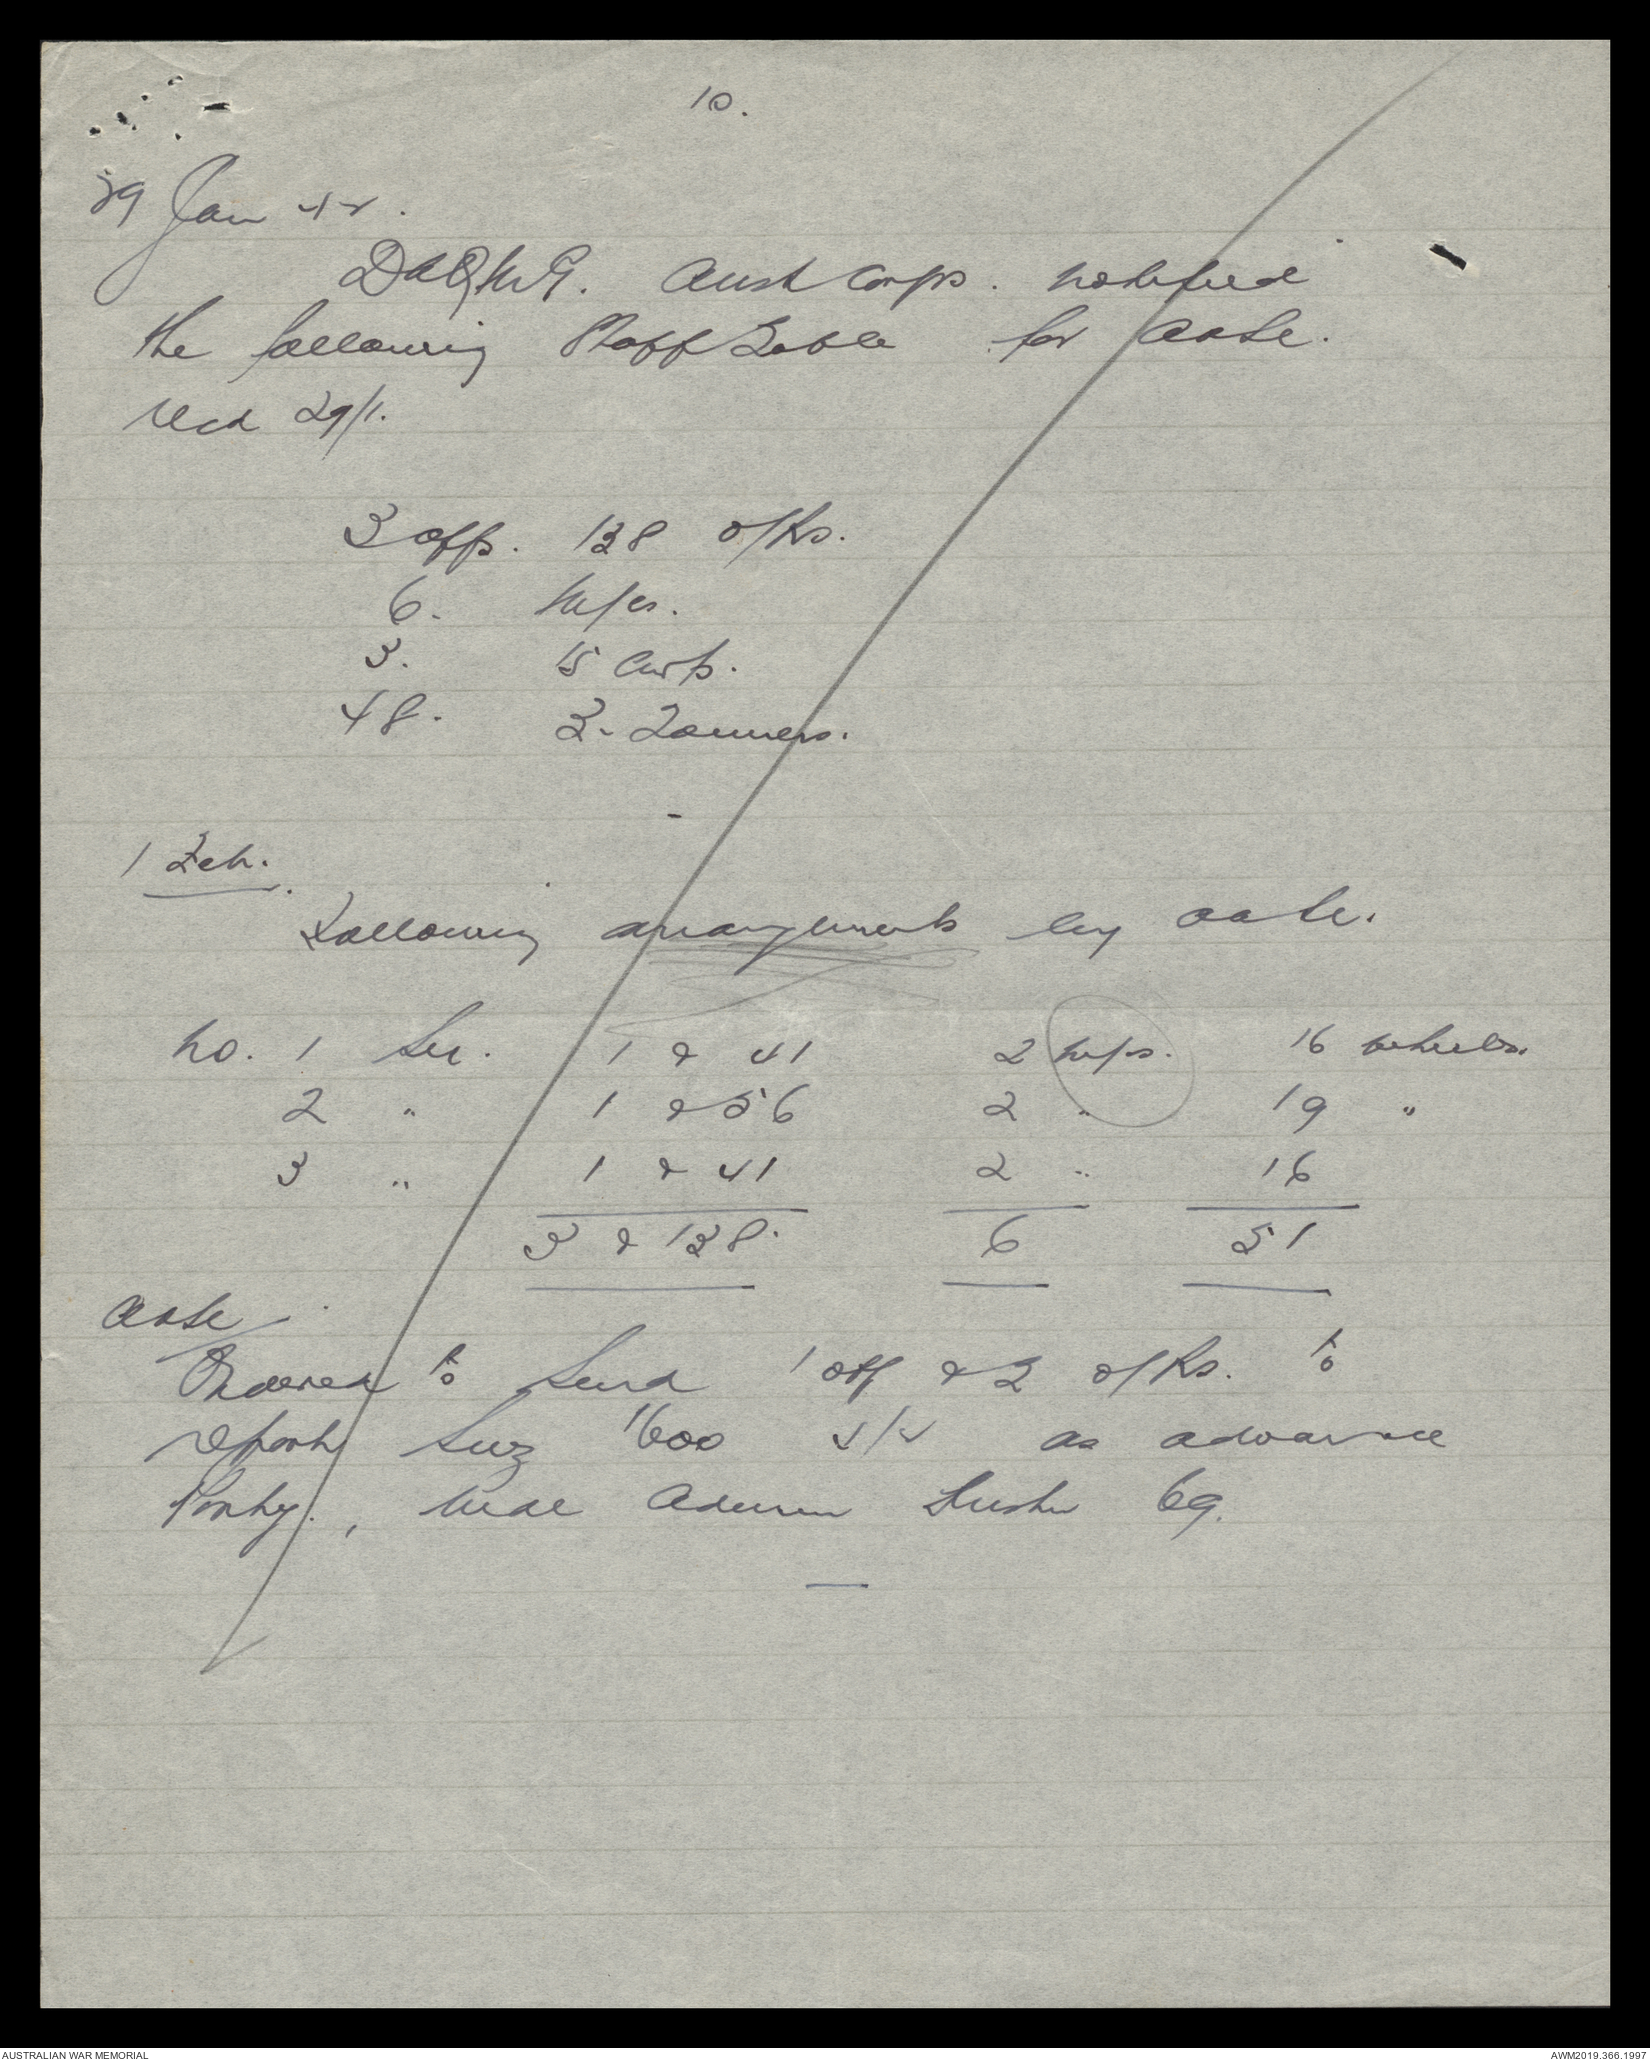 10.
29 Jan 42.
DAQMG. Aust Corps. notified
the following Staff Table for
recd 29/1.
3 offs. 138 o/Rs.
6. M/cs.
3. 15 cwts.
48. 3-Tonners.
1 Feb.
Following arrangements by
No. 1 Sec. 1 & 41 2 m/cs. 16 vehicles.
2 " 1 & 56 2 " 19 "
3 " 1 & 41 2 " 16
3 & 138. 6 51
Ordered to send 1 off & 2 o/Rs. to
report Suez 1600 4/2 as advance
Party., vide Admin Instn 69.
AUSTRALIAN WAR MEMORIAL
AWM2019.366.1997